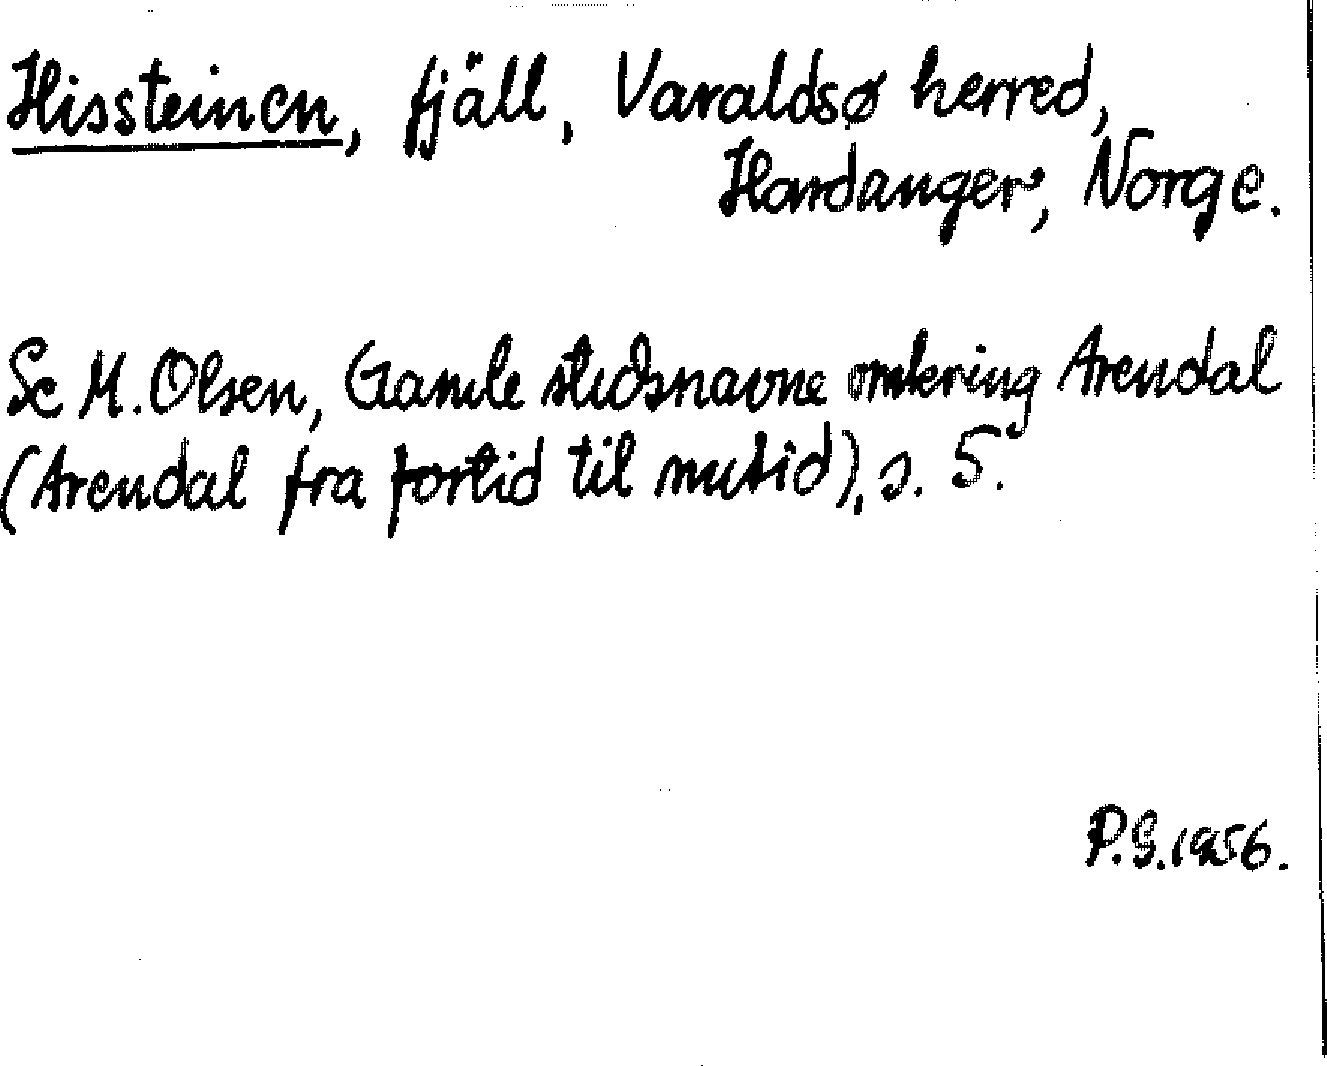 Hissteinen, fjäll, Varaldsø herred,
Hardanger, Norge.
Se M. Olsen, Gamle stedsnavne omkring Arendal
(Arendal fra fortid til nutid), s. 5.
P.S. 1956.